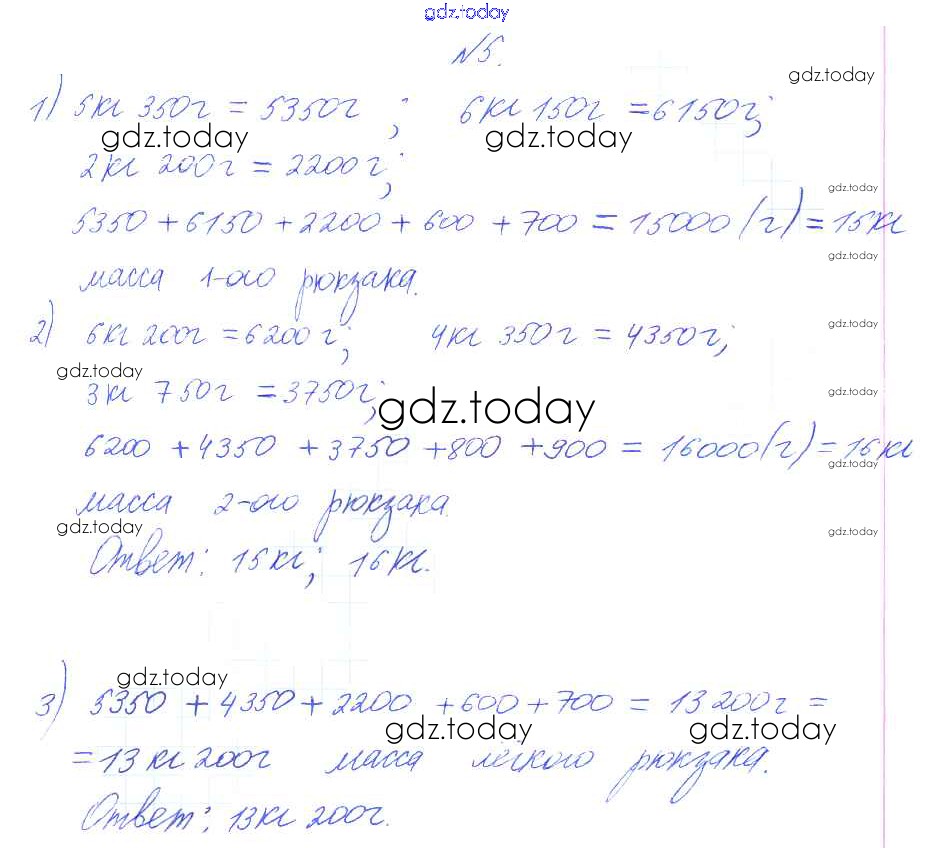 gdz.today
№5.
gdz.today
1) 5кг 350г = 5350г ; 6кг 150г = 6150г;
gdz.today gdz.today
2кг 200г = 2200г;
gdz.today
5350 + 6150 + 2200 + 600 + 700 = 15000 (г) = 15кг
gdz.today
масса 1-ого рюкзака.
gdz.today
2) 6кг 200г = 6200г; 4кг 350г = 4350г;
gdz.today
3кг 750г = 3750г;
gdz.today
gdz.today
6200 + 4350 + 3750 + 800 + 900 = 16000 (г) = 16кг
gdz.today
масса 2-ого рюкзака.
gdz.today
gdz.today
Ответ: 15кг; 16кг.
gdz.today
3) 5350 + 4350 + 2200 + 600 + 700 = 13200г =
gdz.today gdz.today
= 13кг 200г масса лёгкого рюкзака.
Ответ: 13кг 200г.